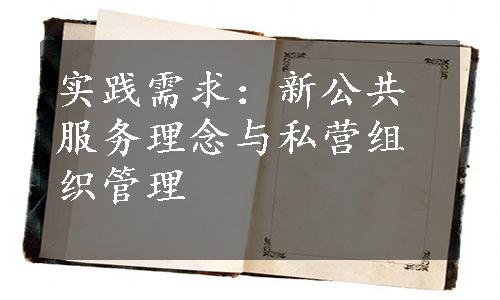 实践需求：新公共
服务理念与私营组
织管理